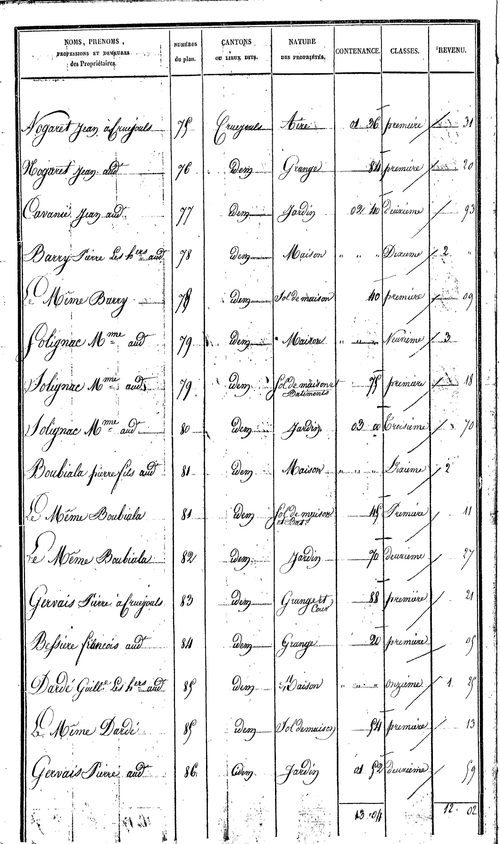 NOMS, PRENOMS, PROFESSIONS ET DEMEURES des Propriétaires. NUMÉROS du plan. CANTONS OU LIEUX DITS. NATURE DES PROPRIÉTÉS. CONTENANCE. CLASSES. REVENU.
Nogaret Jean à Cruejouls 75 Cruejouls Aire 01 36 première 31
Nogaret Jean aud 76 idem Grange 84 première 20
Cavanié Jean aud 77 idem Jardin 02 40 deuxième 93
Barry Pierre Les hers aud 78 idem Maison " " " Dixieme 2 "
Le Même Barry 78 idem Sol de maison 40 première 09
Solignac Mme aud 79 idem Maison " " Neuvième 3
Solignac Mme aud 79 idem Sol de maison et Batiments 75 première 18
Solignac Mme aud 80 idem Jardin 03 00 Troisième 70
Boubiala pierre fils aud 81 idem Maison " " " Dixième 2
Le Même Boubiala 81 idem Sol de maison 45 Première 11
Le Même Boubiala 82 idem Jardin 70 deuxième 27
Gervais Pierre à Cruejouls 83 idem Grange et Cour 88 première 21
Bessiere francois aud 84 idem Grange 20 première 05
Dardé Guille Les hers aud 85 idem Maison " " " onzième 1 25
Le Même Dardé 85 idem Sol de maison 54 première 13
Gervais Pierre aud 86 idem Jardin 01 52 deuxième 59
13 04 12 02